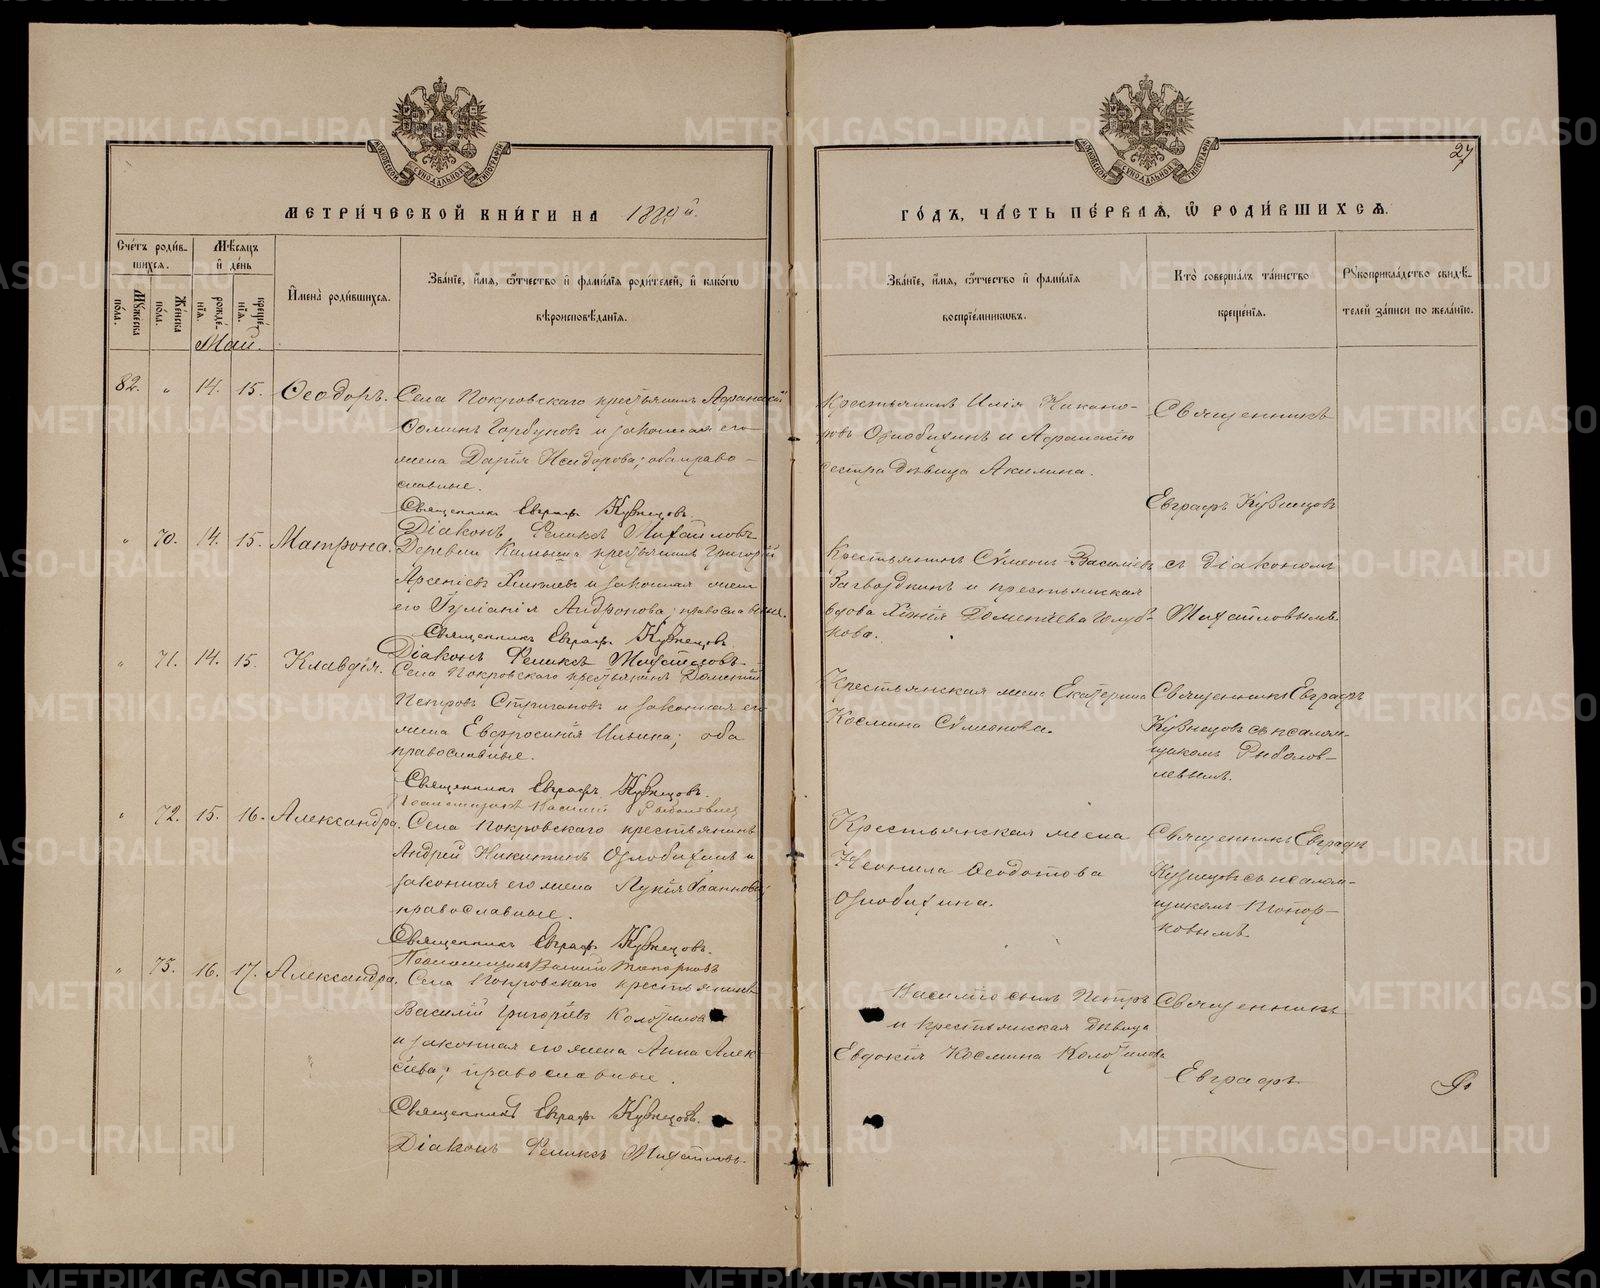 27
МЕТРИЧЕСКОЙ КНИГИ НА 1889й.
ГОДЪ, ЧАСТЬ ПЕРВАЯ, Ѡ РОДИВШИХСЯ.
Счетъ родившихся.
Мужеска пола.
Женска пола.
Мѣсяцъ и день
рожденія.
крещенія.
Май.
Имена родившихся.
Званіе, имя, отчество и фамилія родителей, и какого
вѣроисповѣданія.
Званіе, имя, отчество и фамилія
воспріемниковъ.
Кто совершалъ таинство
крещенія.
Рукоприкладство свидѣ-
телей записи по желанію.
82. " 14. 15. Ѳеодоръ.
Села Покровскаго крестьянинъ Аѳанасій
Ѳоминъ Горбуновъ и законная его
жена Дарія Исидорова; оба право-
славные.
Священникъ Евграфъ Кузнецовъ.
Діаконъ Феликсъ Михайловъ
Крестьянинъ Илія Никано-
ровъ Озлобихинъ и Аѳанасію
сестра дѣвица Акилина.
Священникъ
Евграфъ Кузнецовъ
" 70. 14. 15. Матрона.
Деревни крестьянинъ Григорій
Арсеніевъ и законная жена
его Іуліанія Андронова; православные.
Священникъ Евграфъ Кузнецовъ
Діаконъ Феликсъ Михайловъ
Крестьянинъ Сѵмеонъ Васильевъ
Загвоздкинъ и крестьянская
вдова Ксенія Дометіева Голуб-
кова.
съ діакономъ
Михайловымъ
" 71. 14. 15. Клавдія.
Села Покровскаго крестьянинъ Дометій
Петровъ Стригановъ и законная его
жена Евфросинія Ильина; оба
православные.
Священникъ Евграфъ Кузнецовъ.
Псаломщикъ Василій Рыболовлевъ
Крестьянская жена Екатерина
Космина Сѵмонова.
Священникъ Евграфъ
Кузнецовъ съ псалом-
щикомъ Рыболов-
левымъ.
" 72. 15. 16. Александра.
Села Покровскаго крестьянинъ
Андрей Никитинъ Озлобихинъ и
законная его жена Лукія Іоаннова;
православные.
Священникъ Евграфъ Кузнецовъ.
Псаломщикъ Василій Топорковъ
Крестьянская жена
Неонила Ѳеодотова
Озлобихина.
Священникъ Евграфъ
Кузнецовъ съ псалом-
щикомъ Топор-
ковымъ
" 73. 16. 17. Александра.
Села Покровскаго крестьянинъ
Василій Григорьевъ Колотиловъ
и законная его жена Анна Алек-
сіева; православные.
Священникъ Евграфъ Кузнецовъ.
Діаконъ Феликсъ Михайловъ.
Василію сынъ Петръ
и крестьянская дѣвица
Евдокія Космина Колотилова
Священникъ
Евграфъ
METRIKI.GASO-URAL.RU